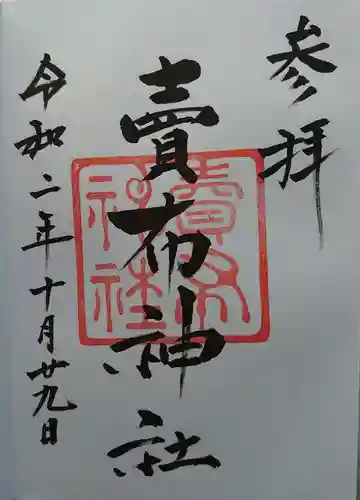 参拝
賣布神社
令和二年十月廿九日
賣布
神社